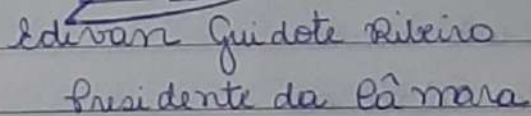 Edivan Guidote Ribeiro
Presidente da Câmara